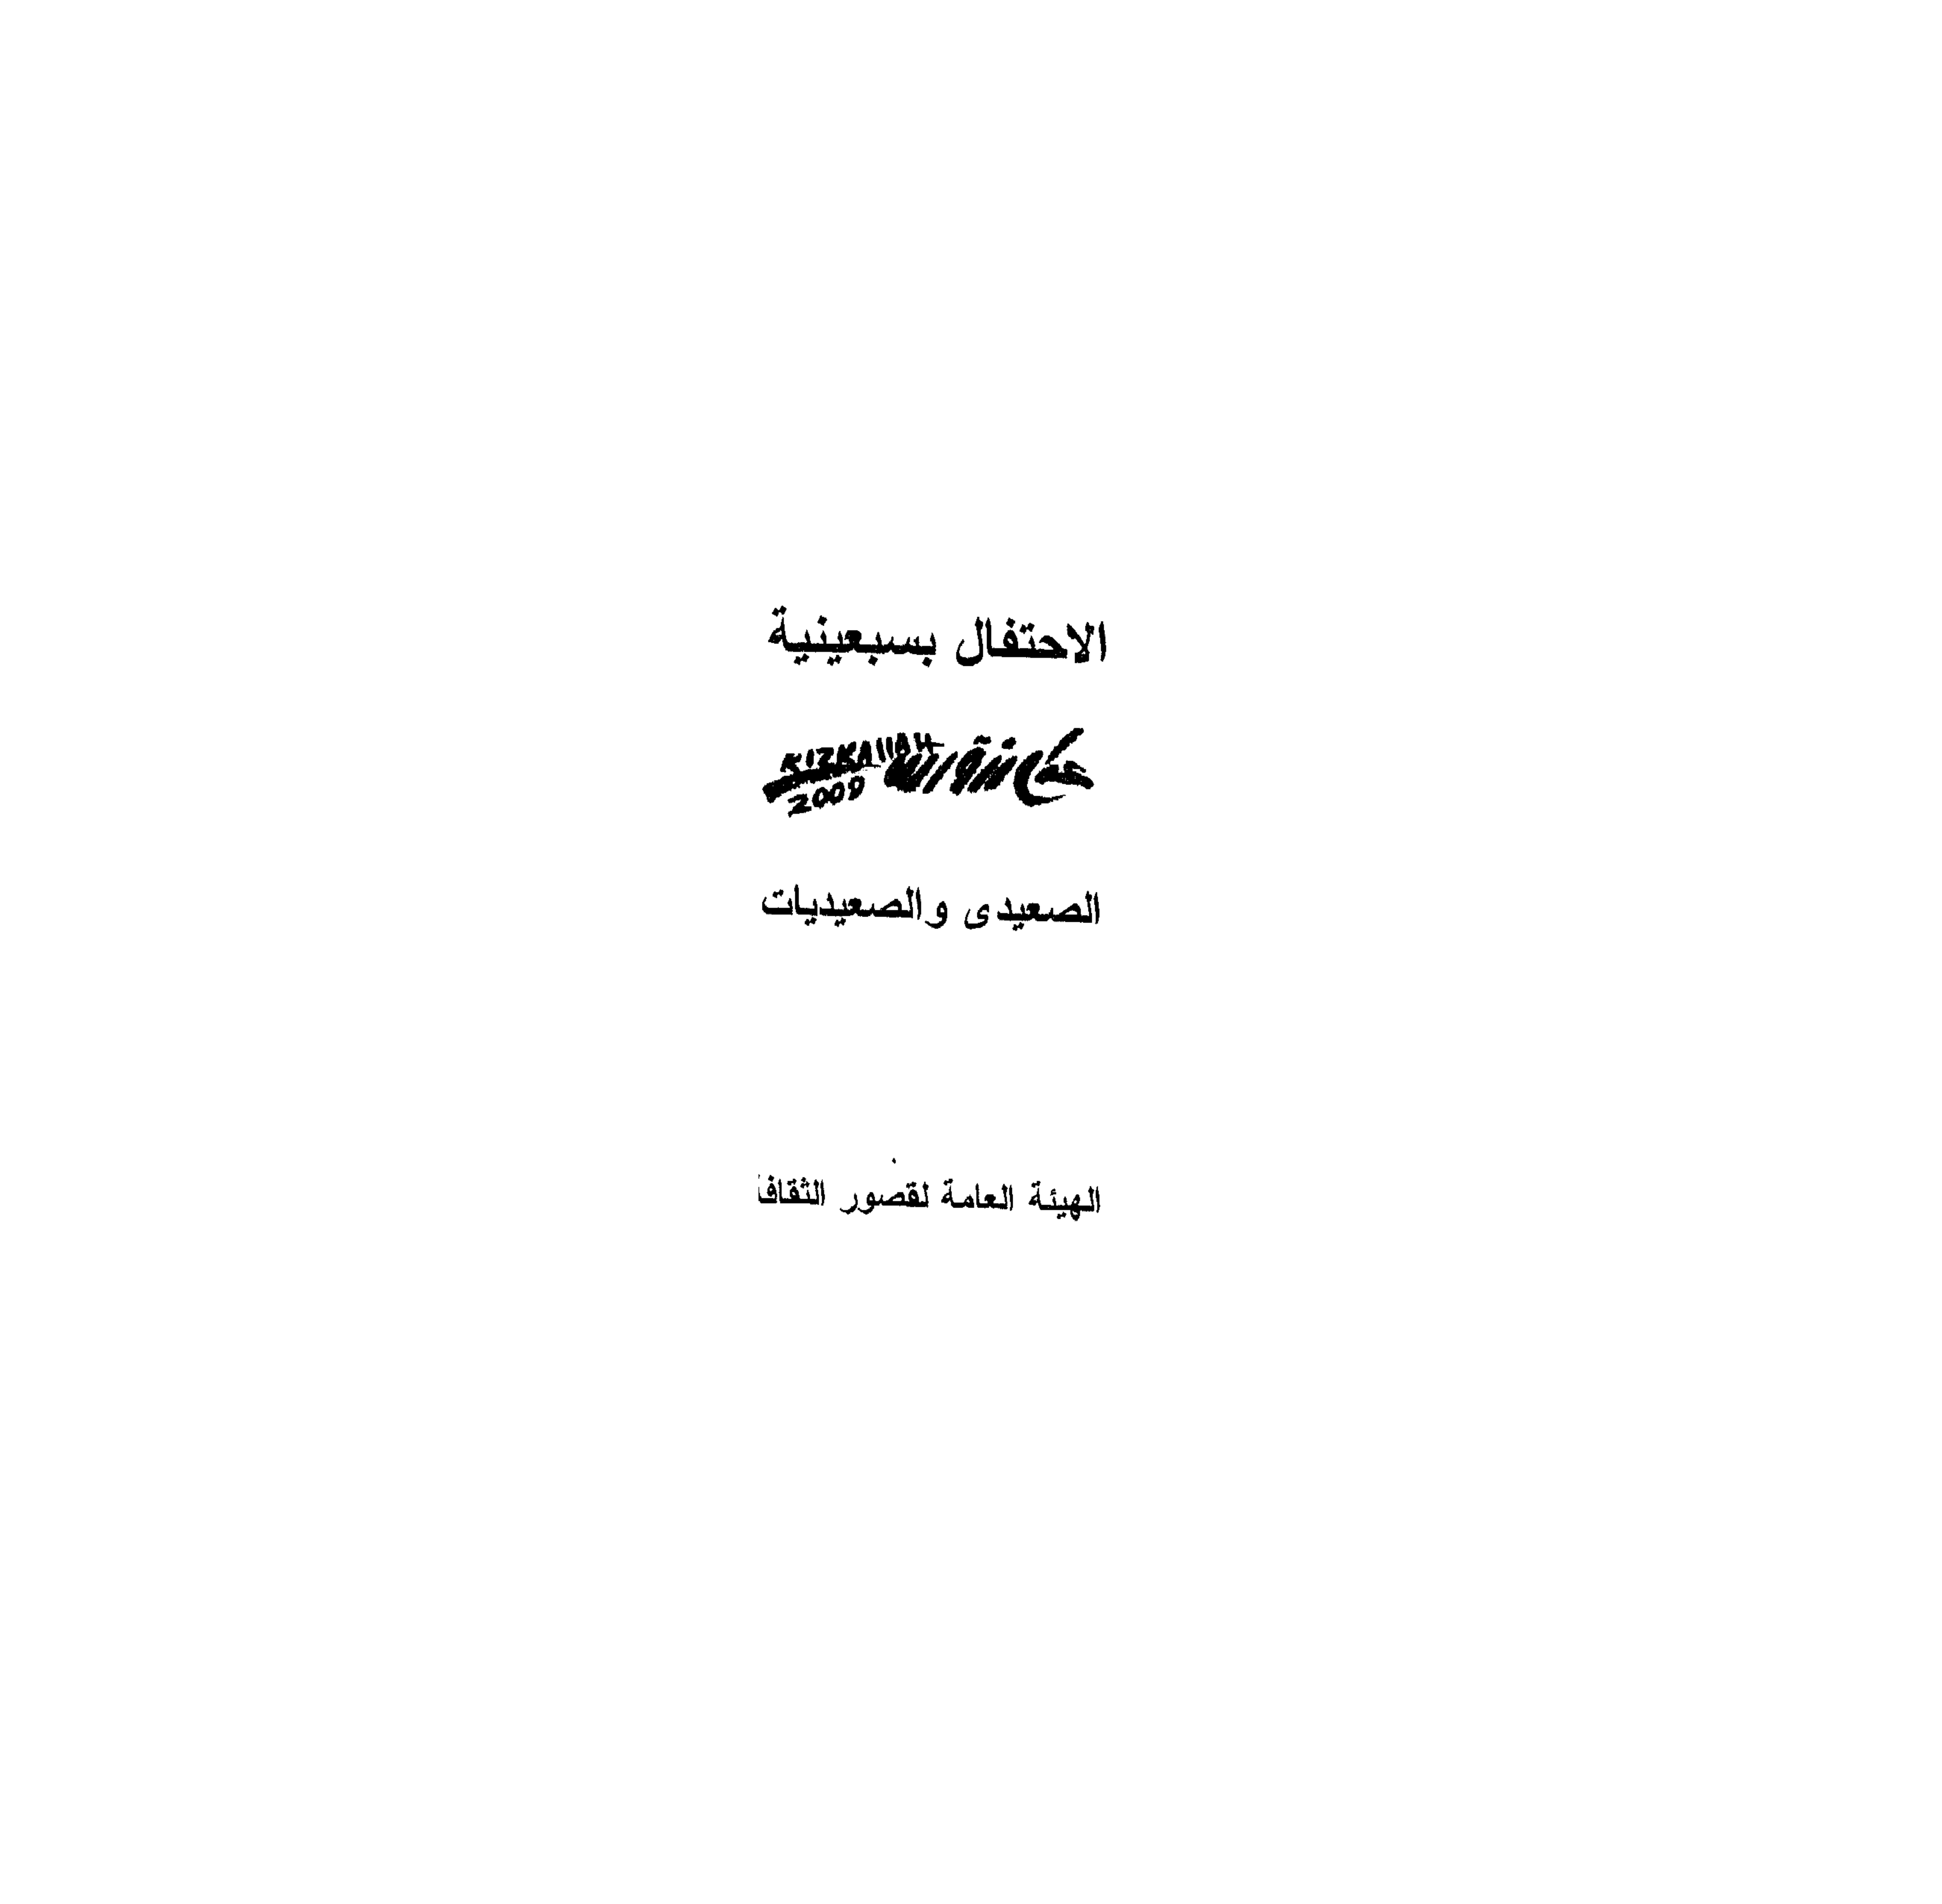 الاحتفال بسبعينية
2000
الصعيدى والصعيديات
الهيئة العامة لقصور الثقافـ